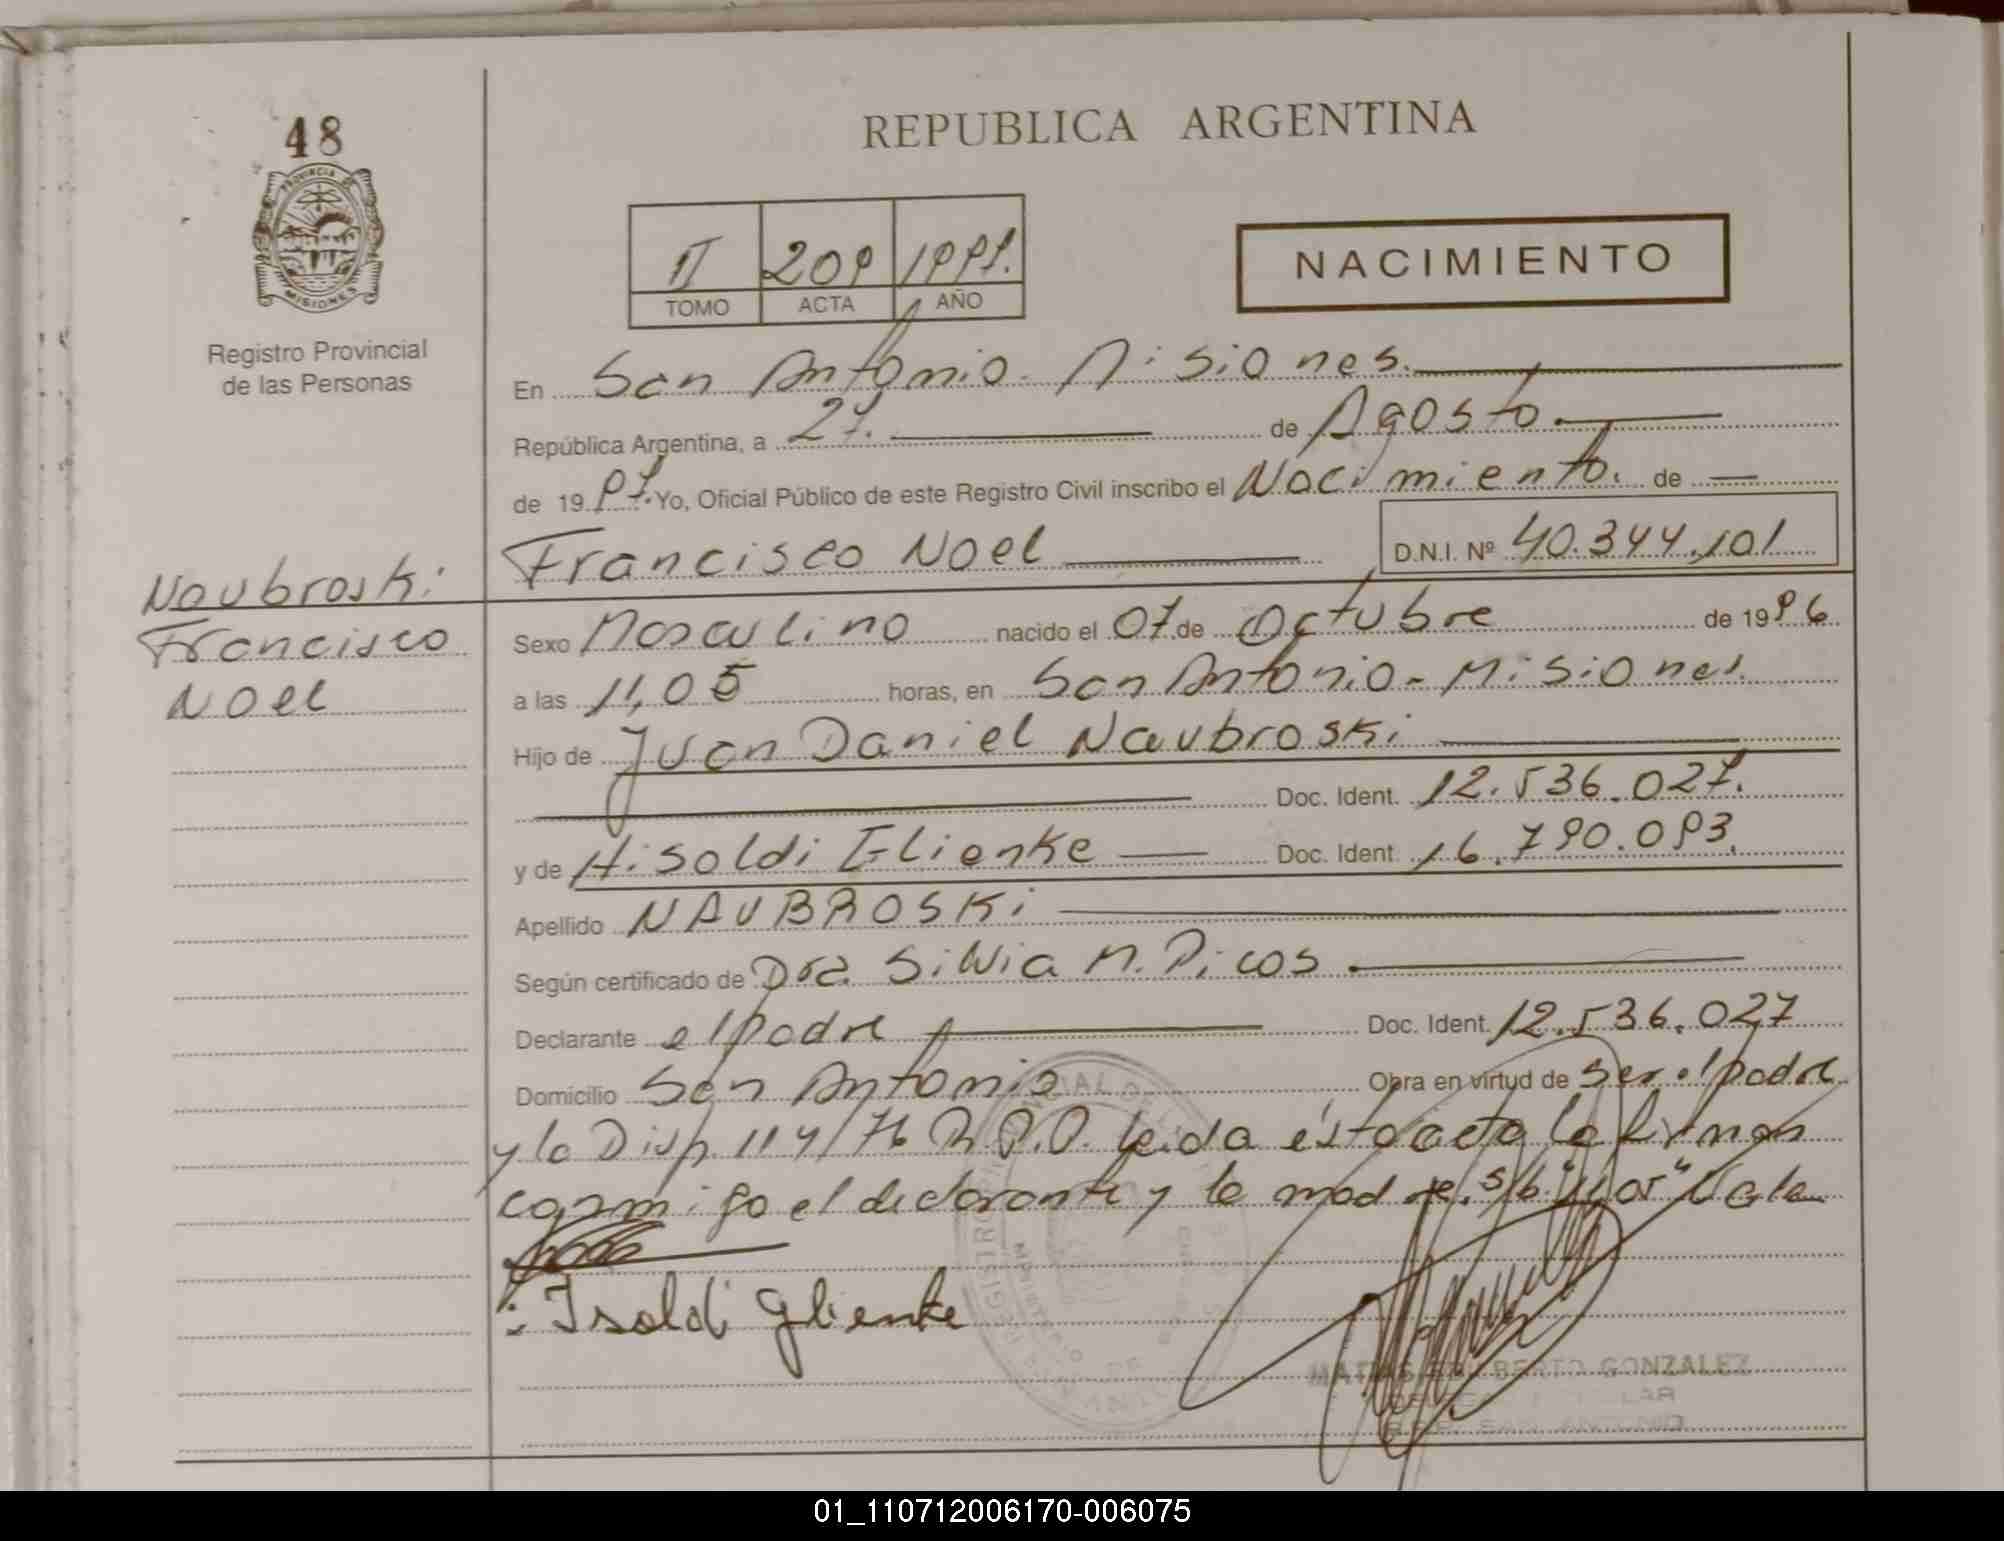 48
PROVINCIA DE
MISIONES
Registro Provincial
de las Personas
REPUBLICA ARGENTINA
II 209 1997.
TOMO ACTA AÑO
NACIMIENTO
En San Antonio - Misiones.
República Argentina, a 27. de Agosto
de 1997. Yo, Oficial Público de este Registro Civil inscribo el Nacimiento. de
Francisco Noel D.N.I. Nº 40.344.101
Naubroski
Francisco
Noel
Sexo Masculino nacido el 07 de Octubre de 1996
a las 11,05 horas, en San Antonio - Misiones.
Hijo de Juan Daniel Naubroski
Doc. Ident. 12.536.027.
y de Hisoldi Glienke Doc. Ident. 16.790.093.
Apellido NAUBROSKi
Según certificado de Dra. Silvia M. Picos
Declarante el padre Doc. Ident. 12.536.027
Domicilio San Antonio Obra en virtud de ser el padre
y la Disp. 114/76 R.P.P. leida ésta acta la firman
conmigo el declarante y la madre. s/b. Vale
: Isoldi Glienke
MATIAS EDILBERTO GONZALEZ
SAN ANTONIO
01_110712006170-006075